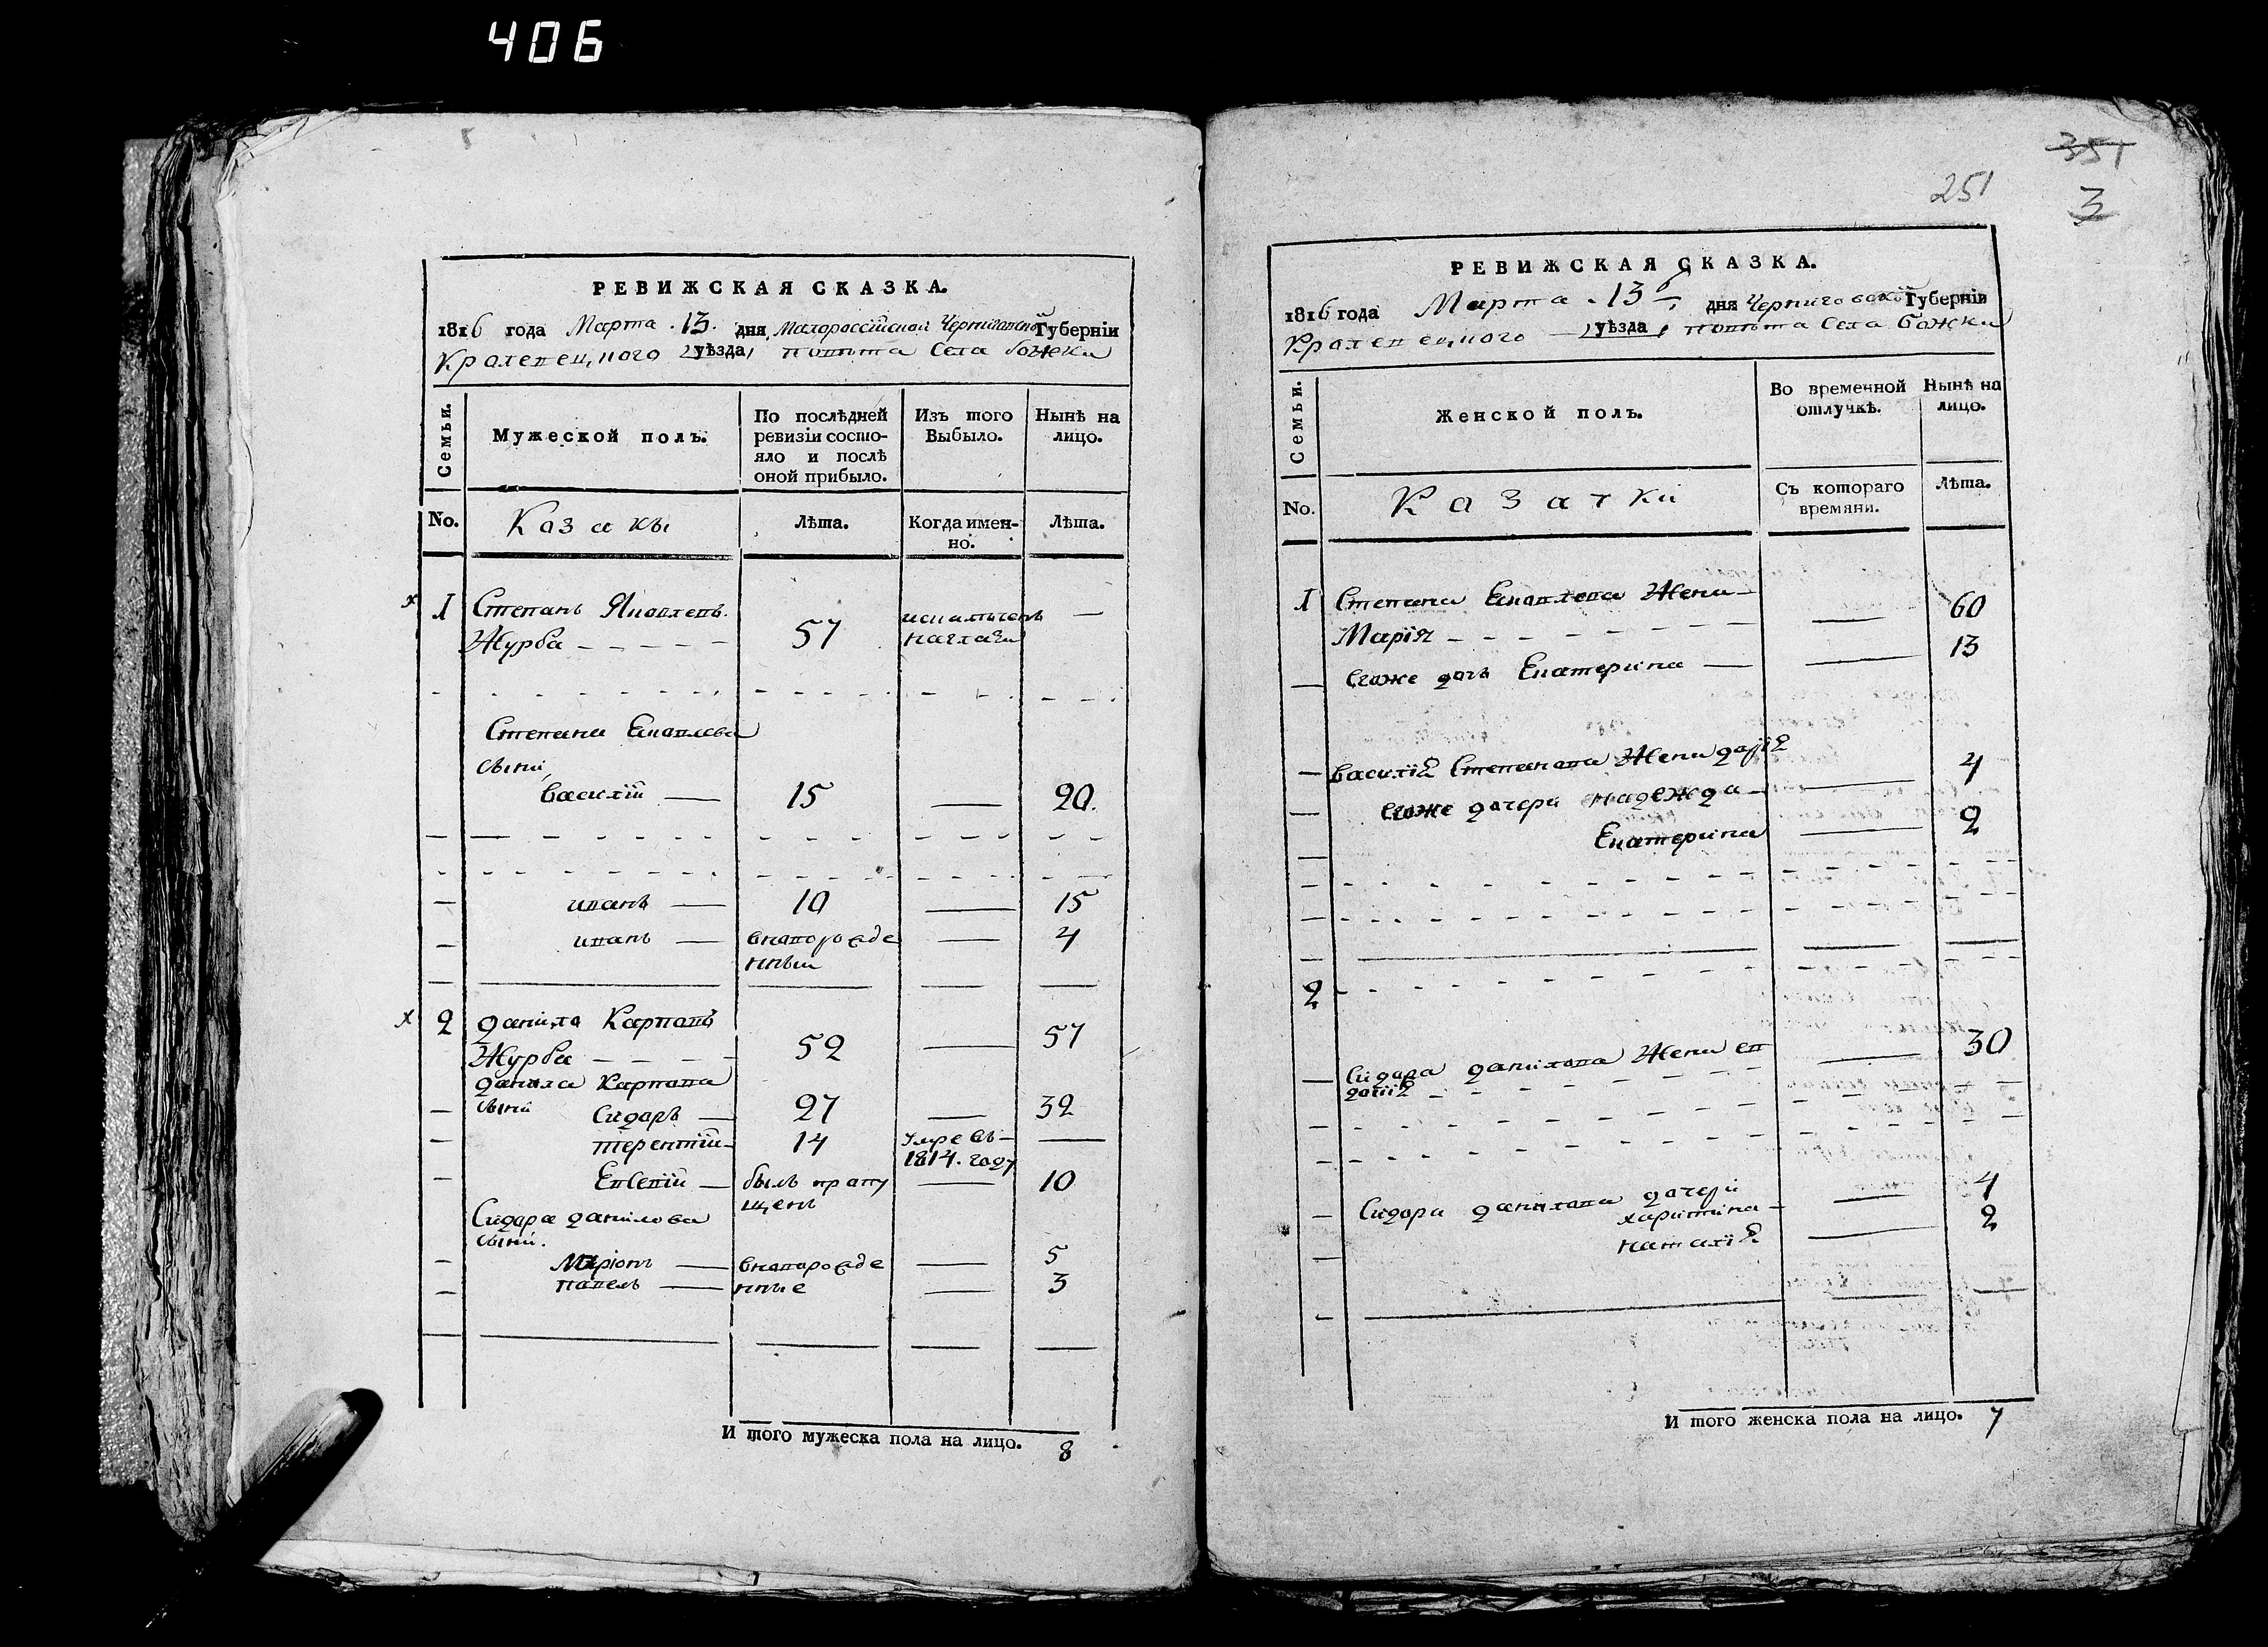 406
РЕВИЖСКАЯ СКАЗКА.
1816 года Марта 13. дня Малороссійской Черниговской Губерніи
Кролевецкого уѣзда, повѣта Села божки
Семьи.
Мужеской полъ.
По послѣдней ревизіи состо-
яло и послѣ
оной прибыло.
Изъ того
Выбыло.
Нынѣ на
лицо.
No.
Казаки
Лѣта.
Когда имен-
но.
Лѣта.
x 1 Степанъ Яковлевъ.
Журба 57 —
Степана Яковлева
сыни,
Василій — 15 — 20.
иванъ — 10 — 15
иванъ — вноворожде — 4
нный
x 2 Данила Карповъ
Журба 52 — 57
Данила Карпова
сыни Сидоръ — 27 — 32
терентій 14 умре въ —
1814. году
Евсевій — былъ пропу — 10
щенъ
Сидора данилова
сыни.
Маріонъ — вноворожде — 5
павелъ — нные — 3
И того мужеска пола на лицо. 8
351
251
3
РЕВИЖСКАЯ СКАЗКА.
1816 года Марта 13 дня Черниговской Губерніи
Кролевецкого уѣзда повѣта Села Божки
Семьи.
Женской полъ.
Во временной
отлучкѣ.
Нынѣ на
лицо.
No.
Казатки
Съ котораго
времяни.
Лѣта.
1 Степана Яковлева Жена
Марія — 60
Егоже дочь Екатерина — 13
Василія Степанова Жена дарія
Егоже дочери надежда — 4
Екатерина — 2
2
Сидора данилова Жена ев
докія — 30
Сидора данилова дочери
харитина — 4
наталія — 2
И того женска пола на лицо. 7